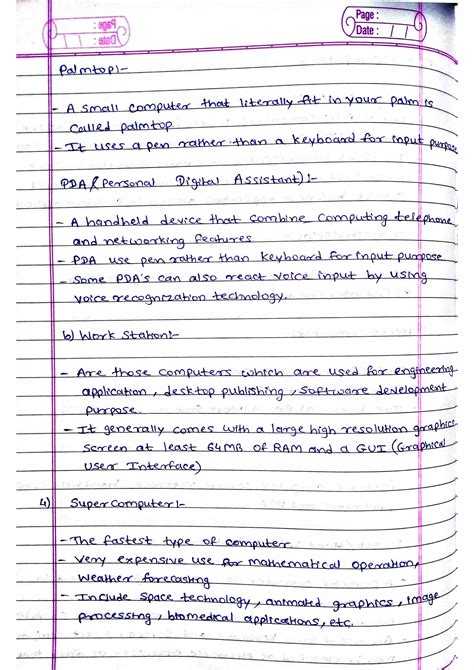 Page :
Date :
Palmtop:-
- A small computer that literally fit in your palm is
called palmtop
- It uses a pen rather than a keyboard for input purpose
PDA (Personal Digital Assistant):-
- A handheld device that combine computing telephone
and networking features
- PDA use pen rather than keyboard for input purpose
- Some PDA's can also react voice input by using
voice recognization technology.
b) Work Station:-
- Are those computers which are used for engineering
application, desktop publishing, software development
purpose.
- It generally comes with a large high resolution graphics
screen at least 64MB of RAM and a GUI (Graphical
User Interface)
4) Supercomputer:-
- The fastest type of computer
- Very expensive use for mathematical operation,
weather forecasting
- Include space technology, animated graphics, image
processing, biomedical applications, etc.